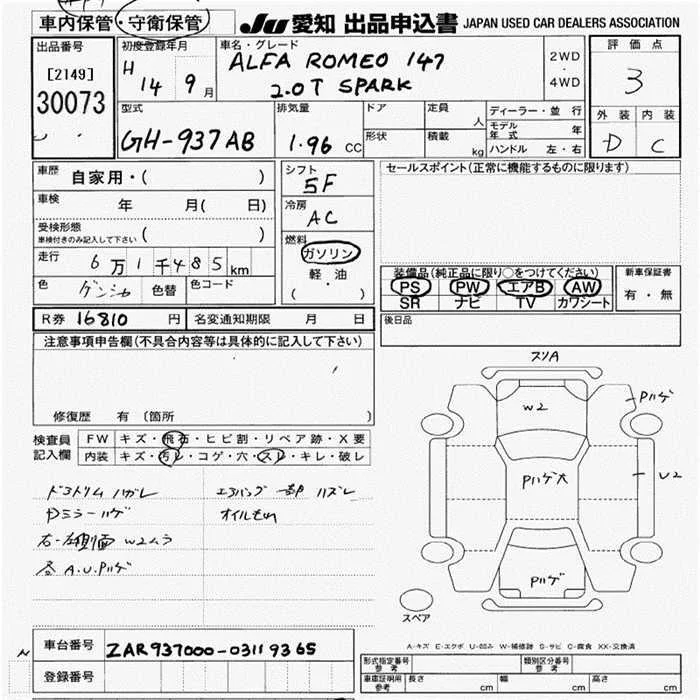 車内保管・守衛保管
JU 愛知 出品申込書 JAPAN USED CAR DEALERS ASSOCIATION
出品番号
[2149]
30073
初度登録年月
H 14 年 9 月
車名・グレード
ALFA ROMEO 147
2.0T SPARK
2WD
・
4WD
評価点
3
外装 内装
D C
型式
GH-937AB
排気量
1.96 CC
ドア
定員
人
形状
積載
kg
ディーラー・並行
モデル年式 年
ハンドル 左・右
車歴
自家用・( )
車検
年 月( 日)
受検形態
車検付きのみ記入して下さい ( )
走行
6万1千485km
色
色替
色コード
シフト
5F
冷房
AC
燃料
ガソリン
軽油
( ・ )
セールスポイント(正常に機能するものに限ります)
装備品(純正品に限り○をつけてください)
PS PW エアB AW
SR ナビ TV カワシート
新車保証書
有・無
R券 16810 円
名変通知期限 月 日
後日品
注意事項申告欄(不具合内容等は具体的に記入して下さい)
修復歴 有〔箇所 〕
検査員
記入欄
FW キズ・飛石・ヒビ割・リペア跡・X要
内装 キズ・汚レ・コゲ・穴・スレ・キレ・破レ
ドアトリム ハガレ
エアバッグ一部ハズレ
Dミラーハゲ
オイルもれ
右・左側面 W2ムラ
各 A.U.Pハゲ
スリA
W2
Pハゲ
Pハゲ大
U2
Pハゲ
スペア
A-キズ E-エクボ U-凹み W-補修跡 S-サビ C-腐食 XX-交換済
車台番号
ZAR937000-03119365
登録番号
形式指定番号
参考
類別区分番号
参考
車庫証明用
参考
長さ cm
幅 cm
高さ cm